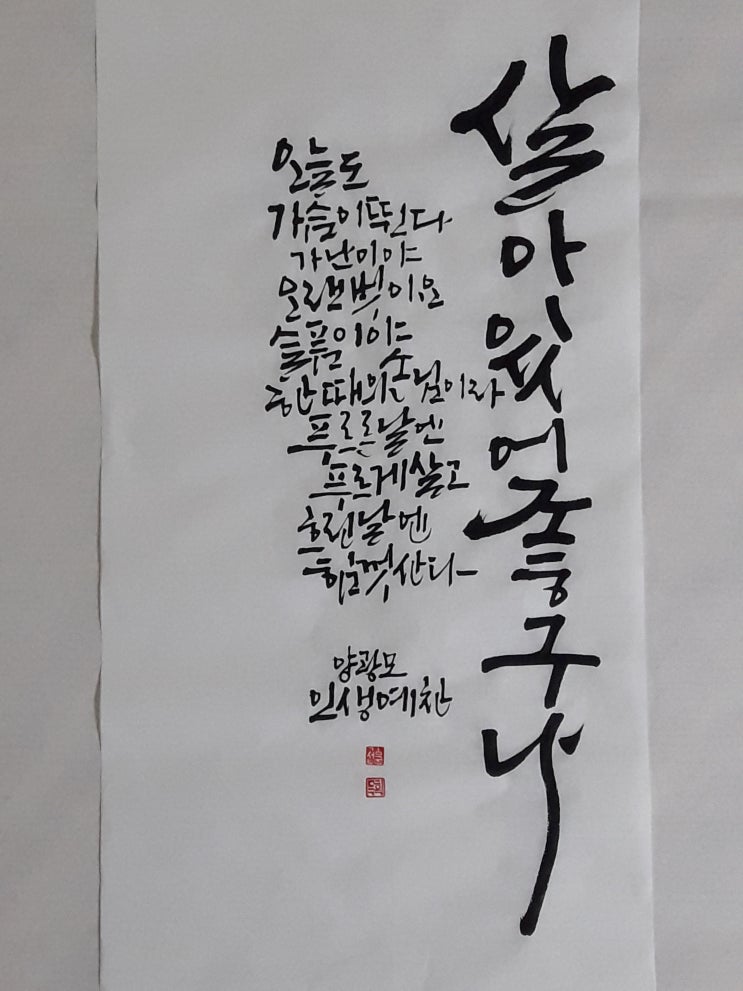 살아 있어 좋구나
오늘도
가슴이 뛴다
가난이야
오랜 벗이요
슬픔이야
한때의 손님이라
푸르른 날엔
푸르게 살고
흐린 날엔
힘껏 산다
양광모
인생예찬